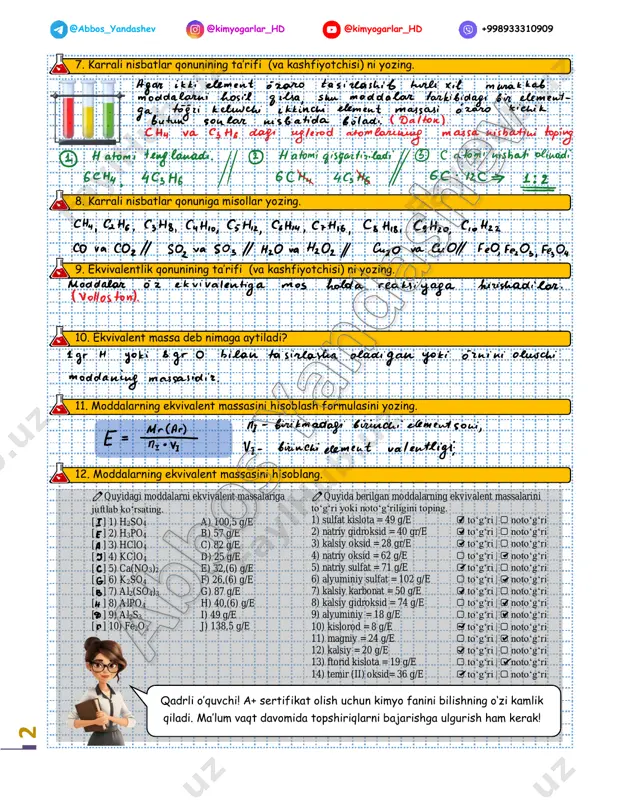 @Abbos_Yandashev @kimyogarlar_HD @kimyogarlar_HD +998933310909
7. Karrali nisbatlar qonunining ta'rifi (va kashfiyotchisi) ni yozing.
Agar ikki element o'zaro ta'sirlashib turli xil murakkab
moddalarni hosil qilsa shu moddalar tarkibidagi bir element-
ga to'g'ri keluvchi ikkinchi element massasi o'zaro kichik
butun sonlar nisbatida bo'ladi. (Dalton).
CH₄ va C₃H₆ dagi uglerod atomlarining massa nisbatini toping
① H atomi tenglanadi. // ② H atomi qisqartiriladi // ③ C atomi nisbati olinadi
6CH₄, 4C₃H₆ 6CH₄ 4C₃H₆ 6C : 12C ⇒ 1:2
8. Karrali nisbatlar qonuniga misollar yozing.
CH₄, C₂H₆, C₃H₈, C₄H₁₀, C₅H₁₂, C₆H₁₄, C₇H₁₆, C₈H₁₈, C₉H₂₀, C₁₀H₂₂
CO va CO₂ // SO₂ va SO₃ // H₂O va H₂O₂ // Cu₂O va CuO // FeO, Fe₂O₃, Fe₃O₄
9. Ekvivalentlik qonunining ta'rifi (va kashfiyotchisi) ni yozing.
Moddalar o'z ekvivalentiga mos holda reaksiyaga kirishadilar.
(Volloston).
10. Ekvivalent massa deb nimaga aytiladi?
1gr H yoki 8gr O bilan ta'sirlasha oladigan yoki o'rnini oluvchi
moddaning massasidir.
11. Moddalarning ekvivalent massasini hisoblash formulasini yozing.
E = Mr(Ar) / n₁·V₁
n₁ - birikmadagi birinchi element soni,
V₁ - birinchi element valentligi;
12. Moddalarning ekvivalent massasini hisoblang.
Quyidagi moddalarni ekvivalent massalariga
juftlab ko'rsating.
[I] 1) H₂SO₄ A) 100,5 g/E
[E] 2) H₃PO₄ B) 57 g/E
[A] 3) HClO₄ C) 82 g/E
[J] 4) KClO₄ D) 25 g/E
[C] 5) Ca(NO₃)₂ E) 32,(6) g/E
[G] 6) K₂SO₄ F) 26,(6) g/E
[B] 7) Al₂(SO₄)₃ G) 87 g/E
[H] 8) AlPO₄ H) 40,(6) g/E
[D] 9) Al₂S₃ I) 49 g/E
[F] 10) Fe₂O₃ J) 138,5 g/E
Quyida berilgan moddalarning ekvivalent massalarini
to'g'ri yoki noto'g'riligini toping.
1) sulfat kislota = 49 g/E ☑ to'g'ri | ☐ noto'g'ri
2) natriy gidroksid = 40 gr/E ☑ to'g'ri | ☐ noto'g'ri
3) kalsiy oksid = 28 gr/E ☑ to'g'ri | ☐ noto'g'ri
4) natriy oksid = 62 g/E ☐ to'g'ri | ☑ noto'g'ri
5) natriy sulfat = 71 g/E ☑ to'g'ri | ☐ noto'g'ri
6) alyuminiy sulfat = 102 g/E ☐ to'g'ri | ☑ noto'g'ri
7) kalsiy karbonat = 50 g/E ☑ to'g'ri | ☐ noto'g'ri
8) kalsiy gidroksid = 74 g/E ☐ to'g'ri | ☑ noto'g'ri
9) alyuminiy = 18 g/E ☐ to'g'ri | ☑ noto'g'ri
10) kislorod = 8 g/E ☑ to'g'ri | ☐ noto'g'ri
11) magniy = 24 g/E ☐ to'g'ri | ☑ noto'g'ri
12) kalsiy = 20 g/E ☑ to'g'ri | ☐ noto'g'ri
13) ftorid kislota = 19 g/E ☐ to'g'ri | ☑ noto'g'ri
14) temir (II) oksid= 36 g/E ☑ to'g'ri | ☐ noto'g'ri
Qadrli o'quvchi! A+ sertifikat olish uchun kimyo fanini bilishning o'zi kamlik
qiladi. Ma'lum vaqt davomida topshiriqlarni bajarishga ulgurish ham kerak!
2
Abbos Yandashev